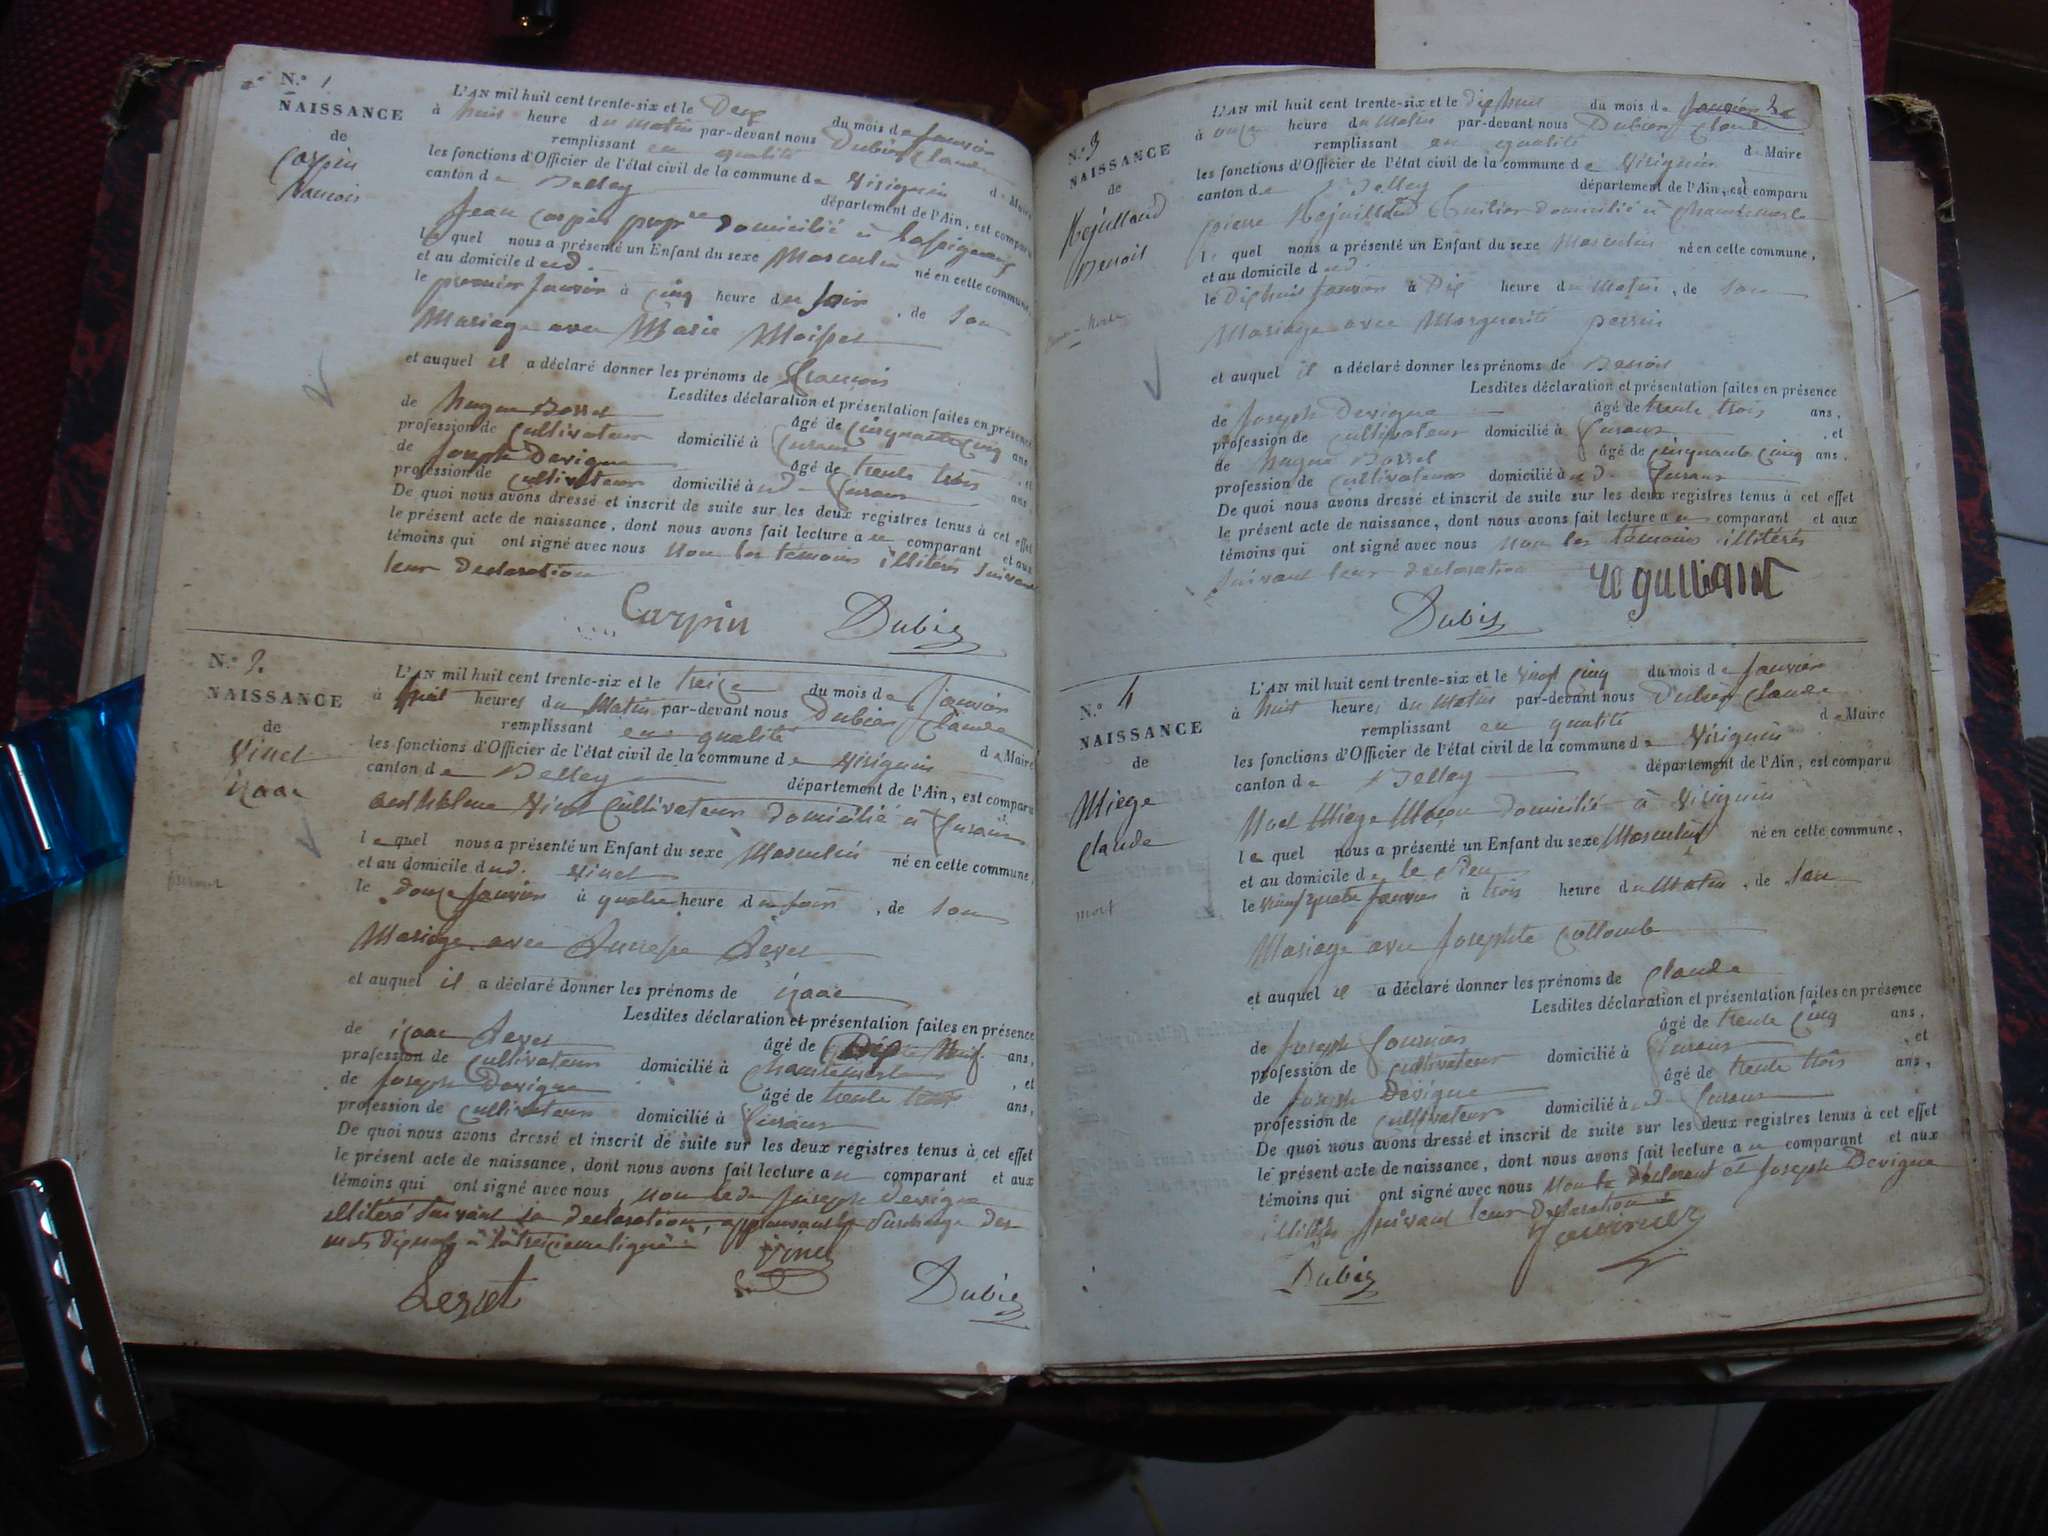 N.º 1
NAISSANCE
de
Carpin
francois
L'AN mil huit cent trente-six et le Deux du mois de Janvier
à huit heure du Matin par-devant nous Dubiez Claude
remplissant en qualité de Maire
les fonctions d'Officier de l'état civil de la commune de Virignin
canton de Belley département de l'Ain, est comparu
Jean Carpin domicilié à
le quel nous a présenté un Enfant du sexe Masculin né en cette commune,
et au domicile dud.
le premier Janvier à cinq heure du soir, de son
Mariage avec Marie
et auquel il a déclaré donner les prénoms de francois
Lesdites déclaration et présentation faites en présence
de hugue Borset âgé de cinquante cinq ans,
profession de cultivateur domicilié à et
de Joseph Devigne âgé de trente trois ans,
profession de cultivateur domicilié à ud.
De quoi nous avons dressé et inscrit de suite sur les deux registres tenus à cet effet
le présent acte de naissance, dont nous avons fait lecture au comparant et aux
témoins qui ont signé avec nous non les témoins illitérés suivant
leur declaration
Carpin Dubiez
N.º 2.
NAISSANCE
de
Vinet
izaac
L'AN mil huit cent trente-six et le treize du mois de Janvier
à huit heures du Matin par-devant nous Dubiez Claude
remplissant en qualité de Maire
les fonctions d'Officier de l'état civil de la commune de Virignin
canton de Belley département de l'Ain, est comparu
anthelme Vinet Cultivateur domicilié à
le quel nous a présenté un Enfant du sexe Masculin né en cette commune,
et au domicile dud. Vinet
le douze Janvier à quatre heure du soir, de son
Mariage avec
et auquel il a déclaré donner les prénoms de izaac
Lesdites déclaration et présentation faites en présence
de izaac âgé de Dix Neuf ans,
profession de cultivateur domicilié à Chantemerle, et
de Joseph Devigne âgé de trente trois ans,
profession de cultivateur domicilié à
De quoi nous avons dressé et inscrit de suite sur les deux registres tenus à cet effet
le présent acte de naissance, dont nous avons fait lecture au comparant et aux
témoins qui ont signé avec nous, non led. Joseph Devigne
illitéré suivant sa declaration, approuvant la surcharge des
mots dix neuf à la treizieme ligne Vinet
Dubiez
N.º 3
NAISSANCE
de
Benoit
L'AN mil huit cent trente-six et le dix huit du mois de Janvier
à onze heure du Matin par-devant nous Dubiez Claude
remplissant en qualité de Maire
les fonctions d'Officier de l'état civil de la commune de Virignin
canton de Belley département de l'Ain, est comparu
pierre Tuilier domicilié à Chantemerle
le quel nous a présenté un Enfant du sexe Masculin né en cette commune,
et au domicile dud.
le Dix huit Janvier à Dix heure du Matin, de son
Mariage avec Marguerite perrin
et auquel il a déclaré donner les prénoms de Benoit
Lesdites déclaration et présentation faites en présence
de Joseph Devigne âgé de trente trois ans,
profession de cultivateur domicilié à, et
de hugue Borset âgé de cinquante cinq ans,
profession de cultivateur domicilié à ud.
De quoi nous avons dressé et inscrit de suite sur les deux registres tenus à cet effet
le présent acte de naissance, dont nous avons fait lecture au comparant et aux
témoins qui ont signé avec nous non les témoins illitérés
suivant leur declaration
Dubiez
N.º 4
NAISSANCE
de
Miege
claude
mort
L'AN mil huit cent trente-six et le vingt cinq du mois de Janvier
à huit heures du Matin par-devant nous Dubiez Claude
remplissant en qualité de Maire
les fonctions d'Officier de l'état civil de la commune de Virignin
canton de Belley département de l'Ain, est comparu
Noel Miege Maçon domicilié à Virignin
le quel nous a présenté un Enfant du sexe Masculin né en cette commune,
et au domicile de
le vingt quatre Janvier à trois heure du Matin, de son
Mariage avec Josephte Collomb
et auquel il a déclaré donner les prénoms de Claude
Lesdites déclaration et présentation faites en présence
de Joseph Fournier âgé de trente cinq ans,
profession de cultivateur domicilié à, et
de Joseph Devigne âgé de trente trois ans,
profession de cultivateur domicilié à ud.
De quoi nous avons dressé et inscrit de suite sur les deux registres tenus à cet effet
le présent acte de naissance, dont nous avons fait lecture au comparant et aux
témoins qui ont signé avec nous non le declarant et Joseph Devigne
illitérés suivant leur declaration
Dubiez